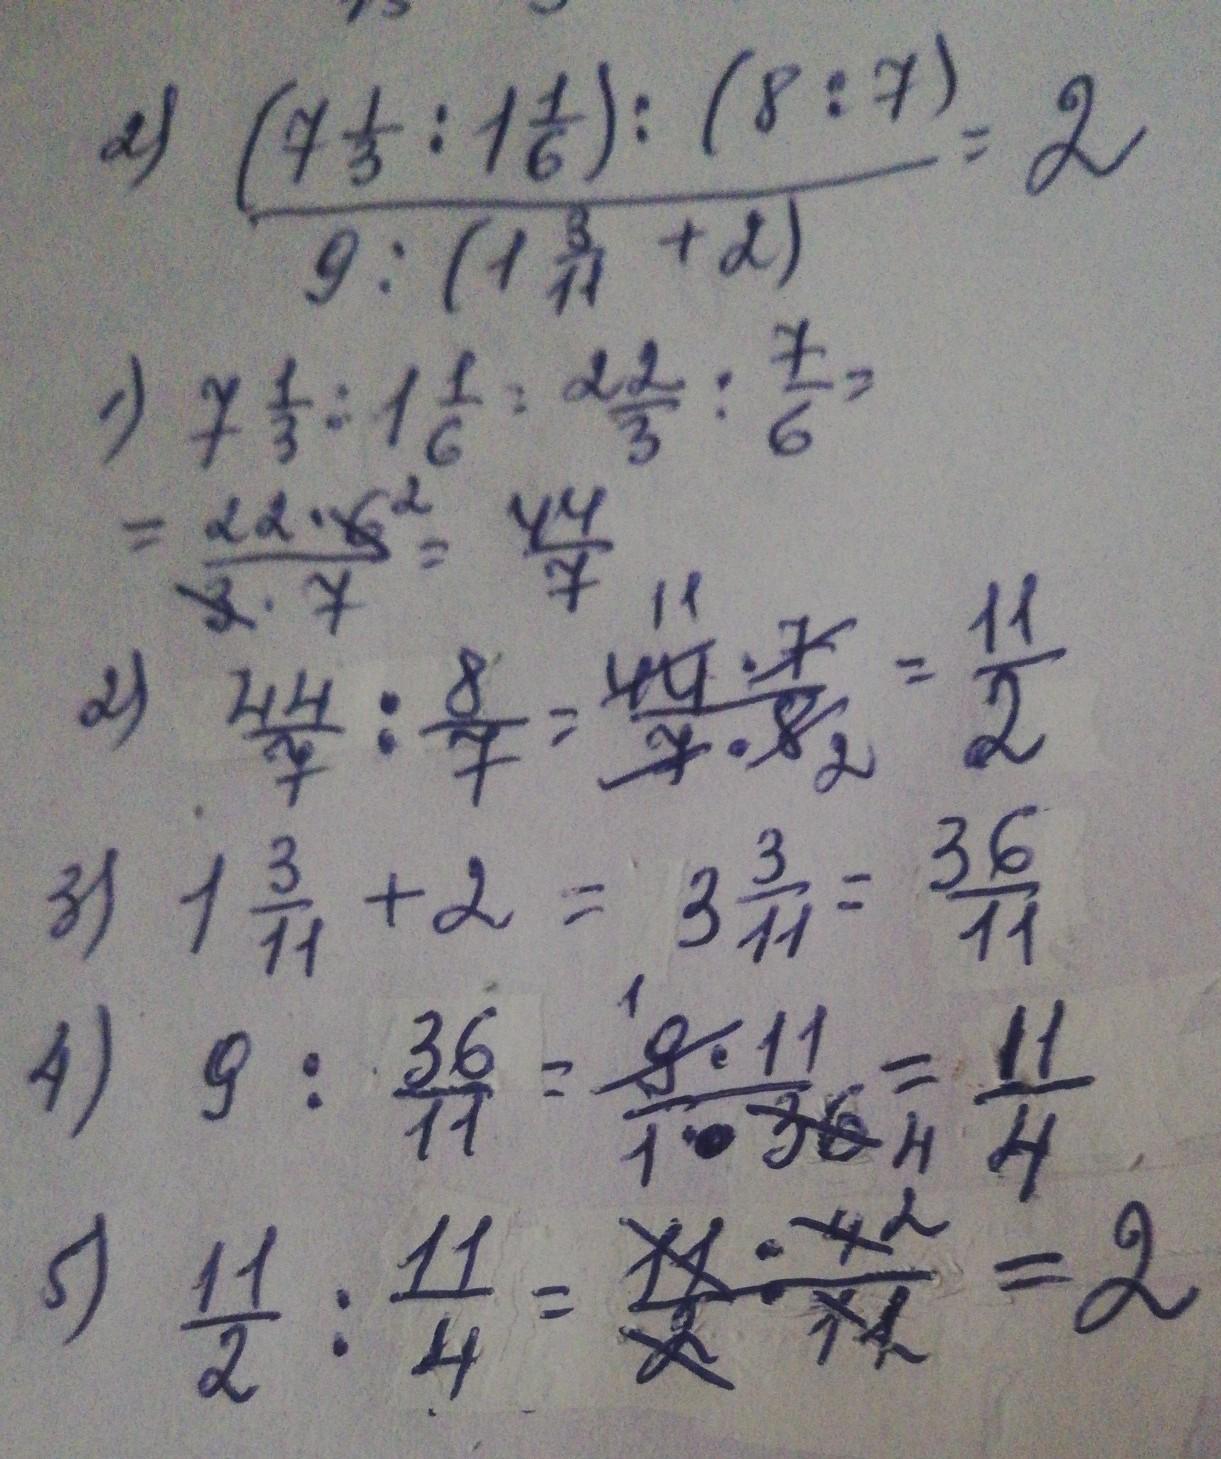 2) (7 1/3 : 1 1/6) : (8 : 7) = 2
9 : (1 3/11 + 2)
1) 7 1/3 : 1 1/6 = 22/3 : 7/6 =
= 22 · 6 2 / 3 · 7 = 44/7
2) 44/7 : 8/7 = 11 44 · 7 / 7 · 8 2 = 11/2
3) 1 3/11 + 2 = 3 3/11 = 36/11
4) 9 : 36/11 = 1 9 · 11 / 1 · 36 4 = 11/4
5) 11/2 : 11/4 = 11 · 4 2 / 2 · 11 = 2